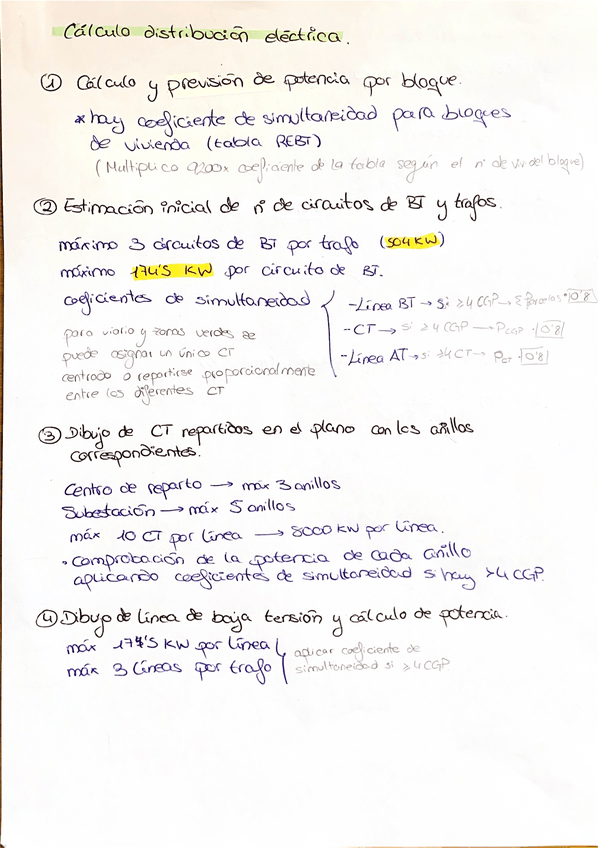 Cálculo distribución eléctrica.
① Cálculo y previsión de potencia por bloque.
* hay coeficiente de simultaneidad para bloques
de vivienda (tabla REBT)
(Multiplico 9200 x coeficiente de la tabla según el nº de viv del bloque)
② Estimación inicial de nº de circuitos de BT y trafos.
máximo 3 circuitos de BT por trafo (504 KW)
máximo 174'5 KW por circuito de BT.
coeficientes de simultaneidad
- Línea BT → si ≥4 CGP → Σ Parcelas · 0'8
- CT → si ≥4 CGP → PCGP · 0'8
- Línea AT → si ≥4 CT → PCT · 0'8
para viario y zonas verdes se
puede asignar un único CT
centrado o repartirse proporcionalmente
entre los diferentes CT
③ Dibujo de CT repartidos en el plano con los anillos
correspondientes.
Centro de reparto → máx 3 anillos
Subestación → máx 5 anillos
máx 10 CT por línea → 8000 KW por línea.
· comprobación de la potencia de cada anillo
aplicando coeficientes de simultaneidad si hay >4 CGP.
④ Dibujo de línea de baja tensión y cálculo de potencia.
máx 174'5 KW por línea
máx 3 líneas por trafo
aplicar coeficiente de
simultaneidad si ≥4 CGP